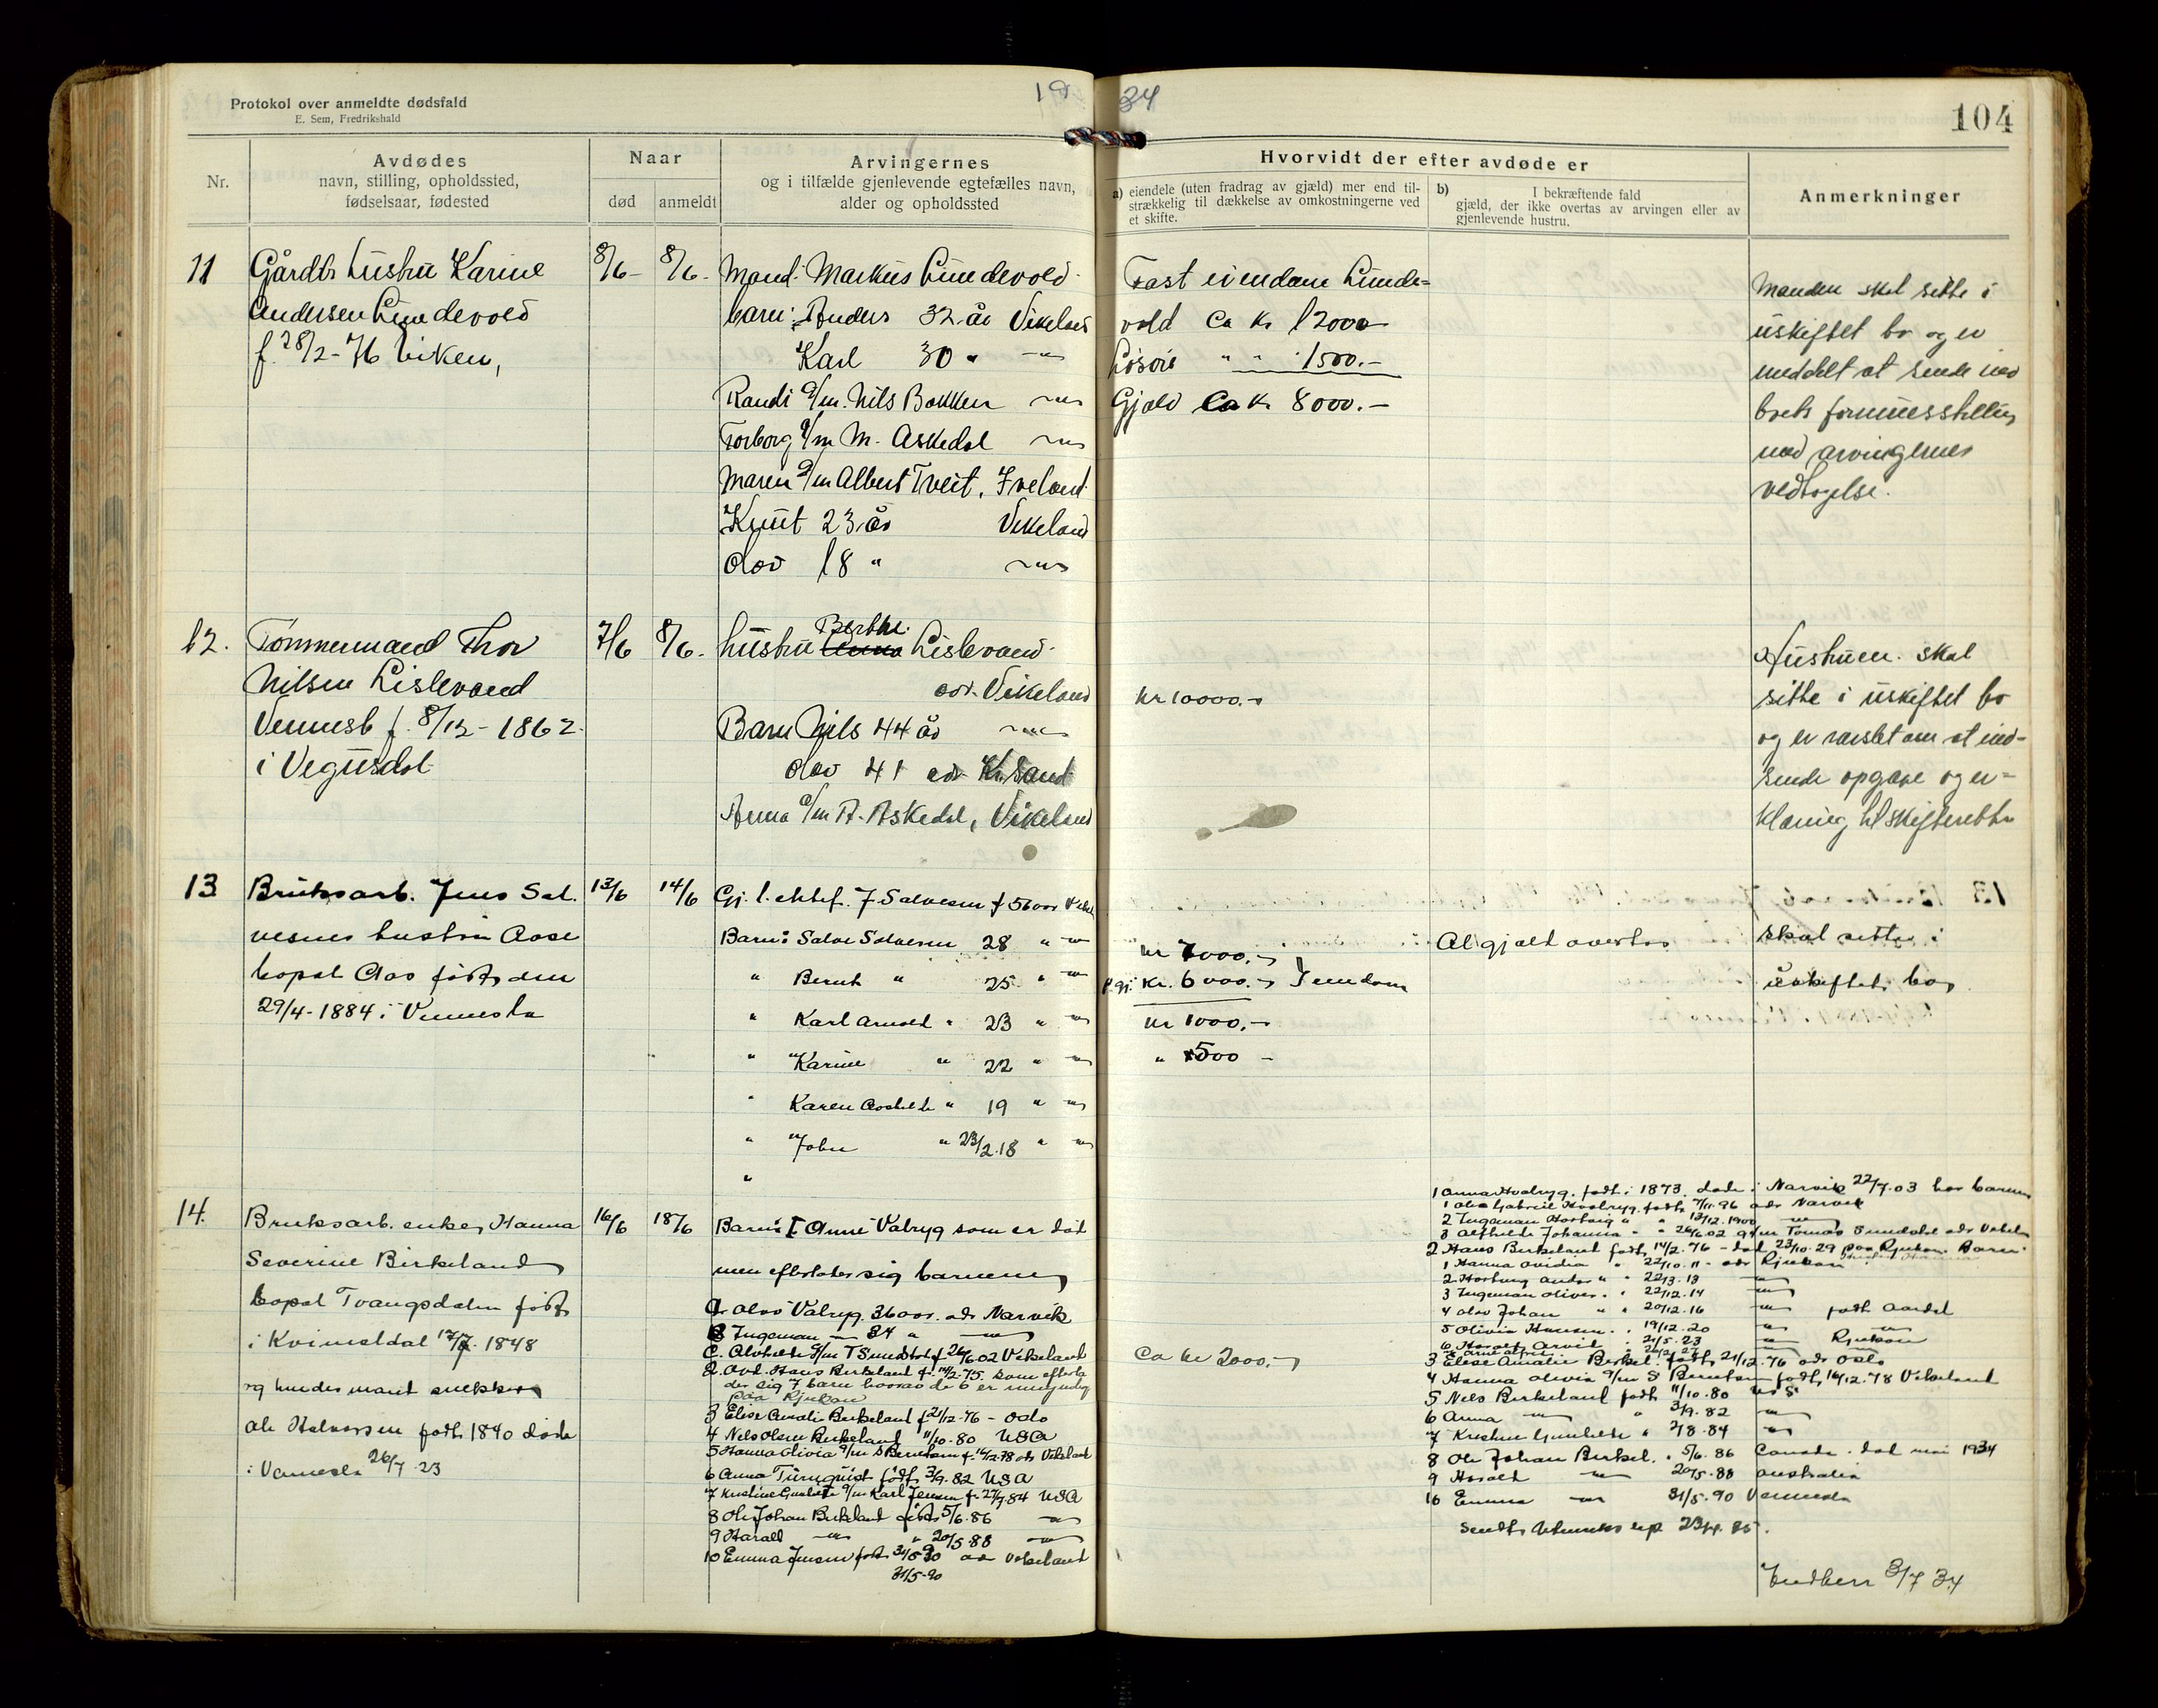 Protokol over anmeldte dødsfald
E. Sem, Fredrikshald
19 34
104
Nr.
Avdødes
navn, stilling, opholdssted,
fødselsaar, fødested
Naar
død
anmeldt
Arvingernes
og i tilfælde gjenlevende egtefælles navn,
alder og opholdssted
Hvorvidt der efter avdøde er
a) eiendele (uten fradrag av gjæld) mer end til-
strækkelig til dækkelse av omkostningerne ved
et skifte.
b) I bekræftende fald
gjæld, der ikke overtas av arvingen eller av
gjenlevende hustru.
Anmerkninger
11
Gårdbr hustru Karine
Andersen Lundevold
f. 28/2-76 Viken,
8/6-
8/6-
Mand: Markus Lundevold
barn: Anders 32 år Vikeland
Karl 30 " -"-
Randi g/m. Nils Bakken -"-
Torborg g/m M. Askedal -"-
Maren g/m Albert Tveit, Iveland
Knut 23 år Vikeland
Olav 18 " -"-
Fast eiendom Lunde-
vold ca kr 12000
Løsøre " " 1500.-
Gjæld ca kr 8000.-
Manden skal sitte i
uskiftet bo og er
meddelt at sende ind
boets formuesstilling
med arvingernes
vedtagelse.
12.
Tømmermand Thor
Nilsen Lislevand
Vennesl f. 8/12-1862
i Vegusdal
7/6
8/6-
Berthe
hustru Lislevand
adr. Vikeland
Barn Nils 44 år -"-
Olav 41 adr Kr.sand
Anna g/m A. Askedal, Vikeland
kr 10000.-
Hustruen skal
sitte i uskiftet bo
og er varslet om at ind-
sende opgave og er-
klæring til skifteretten
13
Bruksarb. Jens Sal-
vesens hustru Aase
topal Aas født den
29/4-1884 i Vennesla
13/6
14/6
Gj. l. ektef. J Salvesen f 56 aar Vikel
Barn: Salve Salvesen 28 " -"-
" Bernt " 25 " -"-
" Karl Arnold " 23 " -"-
" Karine " 22 " -"-
" Karen Aashilde " 19 " -"-
" John " 23/2.18 " -"-
"
kr 7000.-
p.gj. kr. 6000.- Eiendom
kr 1000.-
" 500 -
Al gjæld overtas
skal sitte i
uskiftet bo
14.
Bruksarb. enke Hanna
Severine Birkeland
topal Tvangsdalen født
i Kvinesdal 17/7 1848
og hendes mant snekker
Ole Halvorsen født 1840 døde
i Vennesla 26/7 23
16/6
18/6
Barn: I Anne Valryg som er død
men efterlater sig barnene
a Olav Valryg 36 aar. adr Narvik
B Ingeman -"- 34 " -"-
C. Alvhilde g/m T Sundstøl f 26/6 02 Vikeland
2 Avd. Hans Birkeland f. 14/2.75 som efterla
der sig 7 barn hvorav de 6 er umyndig
paa Rjukan
3 Elise Amalie Birkeland f 21/12-76 - Oslo
4 Nels Olsen Birkeland 11/10-80 USA
5 Hanna Olivia g/m S Berntsen f. 16/12-78 adr Vikeland
6 Anna Turnquist født 3/9-82 USA
7 Kristine Gunhilde g/m Karl Jensen f. 27/9-84 USA
8 Ole Johan Birkeland født 5/6-86 -"-
9 Harald -"- " 20/5-88 -"-
10 Emma Jensen født adr Vikeland
31/5-90
Ca kr 2000.-
1 Anna Hvalryg. født i 1873, døde i Narvik 22/7.03 har barnene
1 Ole Gabriel Hvalryg. født 7/11-96 adr Narvik
2 Ingeman Hartvig " " 13/12.1900 -"-
3 Alfhilde Johanna " " 26/6.02 g/m Tomas Sundstøl adr Vikelan
2 Hans Birkeland født 14/2-76 - død 23/10-29 paa Rjukan Barn:
1 Hanna Ovidia " 22/10.11 - adr Rjukan
2 Hartvig Andor " " 22/3.13 -"-
3 Ingeman Oliver " " 22/12.14 -"-
4 Olav Johan " " 20/12.16 -"- født Aardal
5 Olivia Hansen " " 19/12.20 " -"-
6 Harald Arvid " 21/5-23 -"- Rjukan
3 Elise Amalie Birkel. født 21/12-76 adr Oslo
4 Hanna Olivia g/m S Berntsen født 16/12.78 Vikeland
5 Nels Birkeland født 11/10.80 U S
6 Anna -"- " 3/9.82 -"-
7 Kristine Gunhilde " 2/8-84 -"-
8 Ole Johan Birkel. " 5/6.86 Canada død mai 1934
9 Harald -"- 20/5-88 Australia
10 Emma -"- 31/5-90 Vennesla
Indber 3/7 34